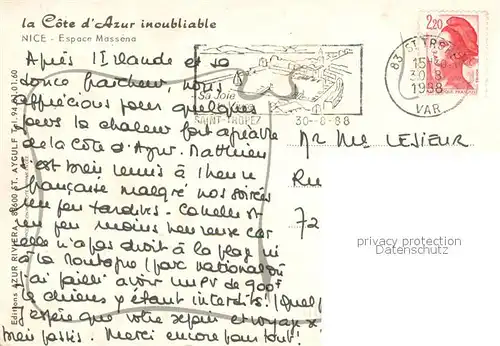 la Côte d'Azur inoubliable
NICE - Espace Masséna
Après l'Irlande et sa
douce fraîcheur, nous
apprécions pour quelques
jours la chaleur fort agréable
de la Côte d'Azur. Matthieu
s'est bien remis à l'heure
française malgré nos soirées
un peu tardives. est
un peu moins heureuse car
elle n'a pas droit à la plage ni
à la montagne (parc national où
j'ai failli avoir un PV de 900F
les chiens y étant interdits!
J'espère que votre séjour et voyage
bien passés. Merci encore pour tout!
Editions AZUR RIVIERA - 83600 ST. AYGULF Tel. 94.81.01.60
Sa Joie
SAINT-TROPEZ 30-8-88
83 ST TROPEZ
15 H
30-8
1988
VAR
2,20
Mr Me LESIEUR
Ru
72
privacy protection
Datenschutz